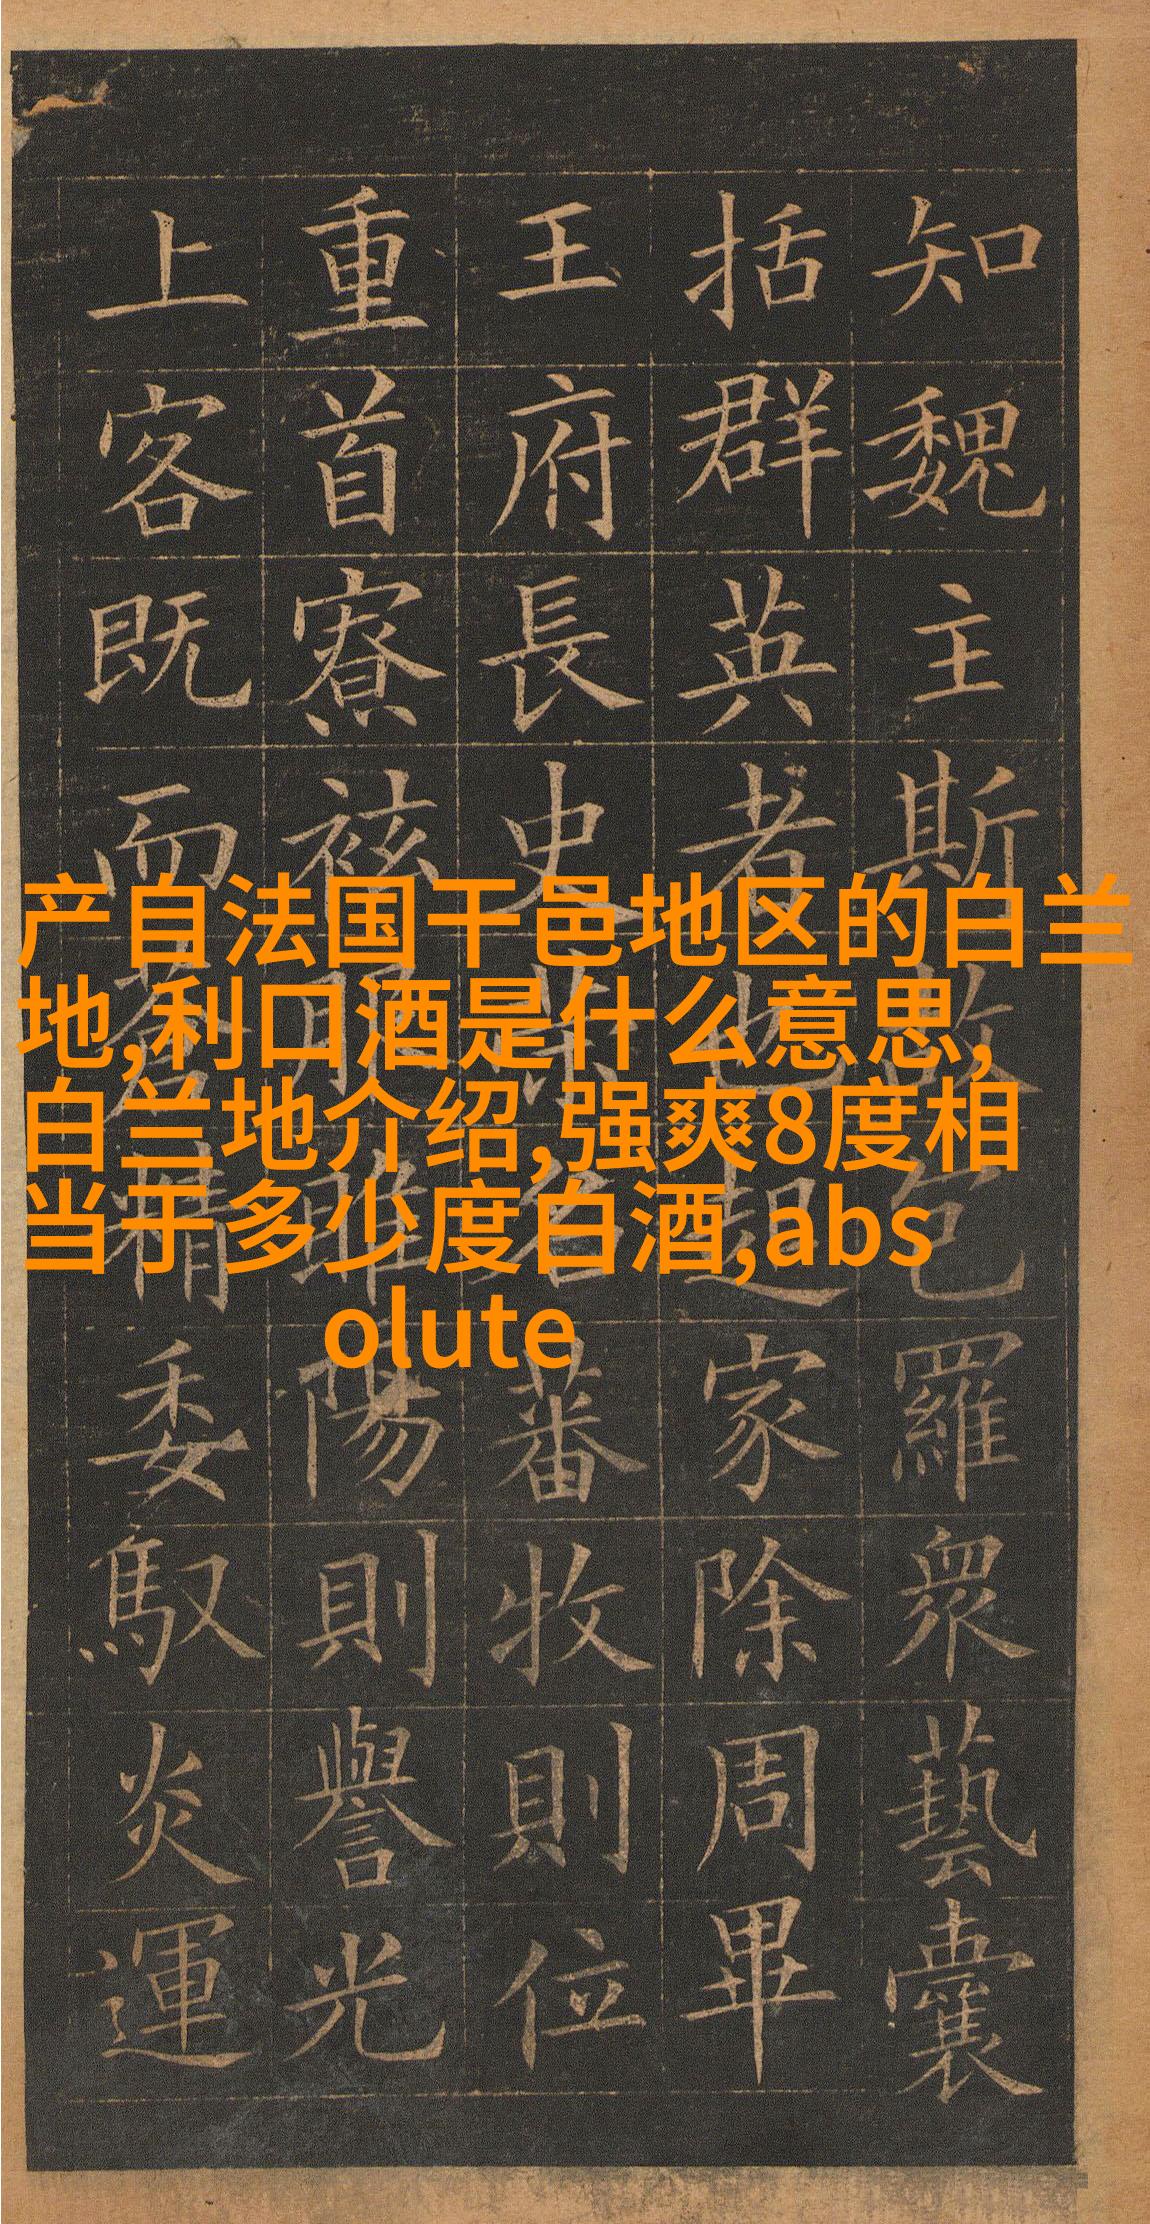 知魏主斯故包羅衆藝囊
括群英者也起家除周畢
王府長史名蕃牧則位
重首寮袨服睢陽則譽光
上客既而蒼精委馭炎運
产自法国干邑地区的白兰
地,利口酒是什么意思,
白兰地介绍,强爽8度相
当于多少度白酒,abs
olute